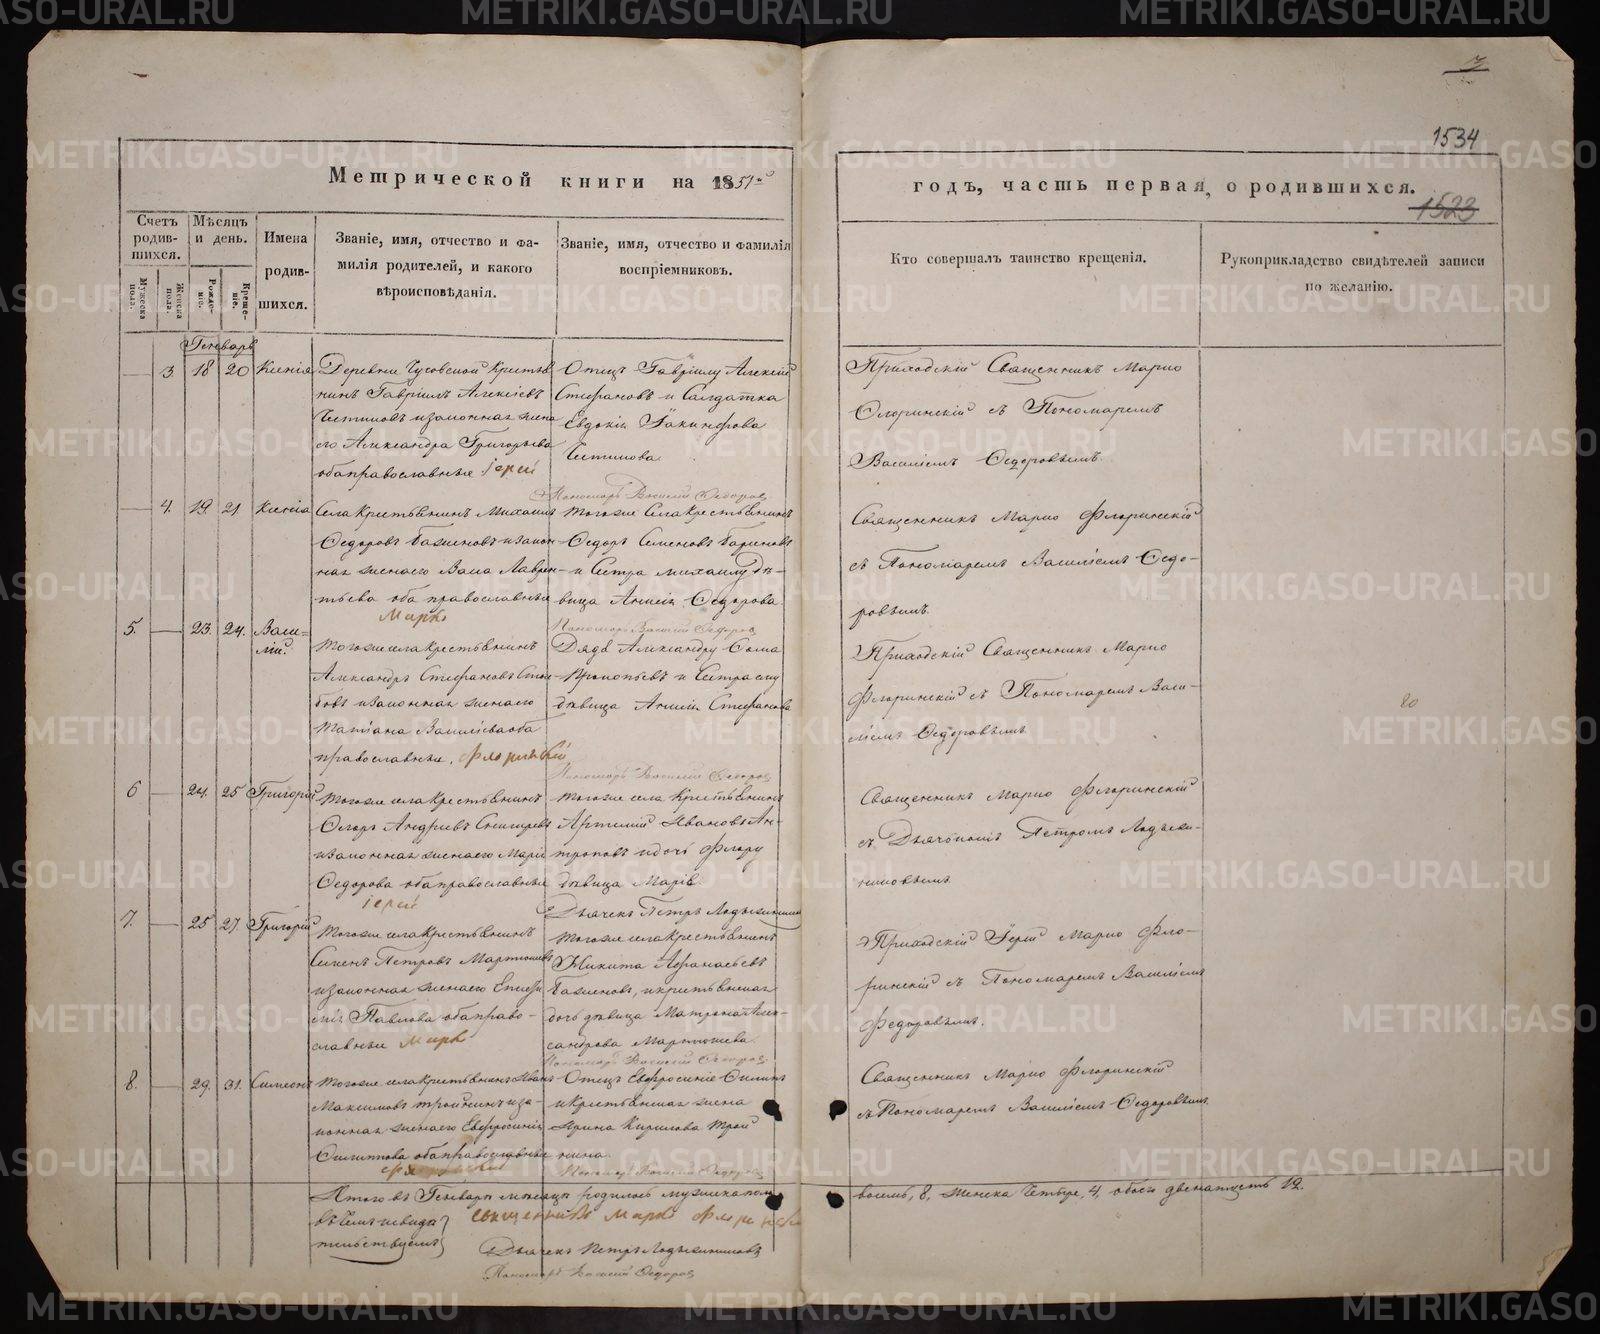 3
1534
Метрической книги на 1851й
годъ, часть первая, о родившихся.
1523
Счетъ родив-шихся.
Мѣсяцъ и день.
Имена родив-шихся.
Званіе, имя, отчество и фа-
милія родителей, и какого
вѣроисповѣданія.
Званіе, имя, отчество и фамилія
воспріемниковъ.
Кто совершалъ таинство крещенія.
Рукоприкладство свидѣтелей записи
по желанію.
Мужеска пола.
Женска пола.
Рожде-ніе.
Креще-ніе.
Генварь
3. 18 20 Ксенія
Деревни Чусовской Крестья
нинъ Гавріилъ Алексіевъ
и законная жена
его Александра Григорьева
оба православные іерей
Отецъ Гавріилу Алексій
Стефановъ и Салдатка
Евдокія Іакинфова
Пономарь Василій Ѳедоровъ
Приходскій Священникъ Марко
Флоринскій съ Пономаремъ
Василіемъ Ѳедоровымъ.
4. 19. 21. Ксенія
Села Крестьянинъ Михаилъ
Ѳедоровъ Баженовъ и закон-
ная жена его Лаврен-
тьева оба православные
Марко
того же Села Крестьянинъ
Ѳедоръ Семеновъ
и Сестра Михаилу дѣ-
вица Анисія Ѳедорова.
Пономарь Василій Ѳедоровъ
Священникъ Марко Флоринскій
съ Пономаремъ Василіемъ Ѳедо-
ровымъ.
5. 23. 24. Васи-
лій.
того же села Крестьянинъ
Александръ Стефановъ
и законная жена его
Татіана Васильева оба
православные. Флоринскій
Дядя Александру Ѳома
Прокопьевъ и Сестра ему
дѣвица Анисія Стефанова
Пономарь Василій Ѳедоровъ
Приходскій Священникъ Марко
Флоринскій съ Пономаремъ Васи-
ліемъ Ѳедоровымъ
6 24. 25 Григорій
того же села Крестьянинъ
Андреевъ
и законная жена его Марія
Ѳедорова оба православные
іерей
того же села Крестьянинъ
Артемій Ивановъ Ан-
троповъ и дочь Флору
дѣвица Марія.
Дьячекъ Петръ
Священникъ Марко Флоринскій
съ Дьячкомъ Петромъ
7. 25 27. Григорій
того же села Крестьянинъ
Семенъ Петровъ Мартюшевъ
и законная жена его
Павлова оба право-
славные Марко
того же села Крестьянинъ
Никита Афанасьевъ
Баженовъ, и крестьянская
дочь дѣвица Матрона Алек-
сандрова Мартюшева.
Пономарь Василій Ѳедоровъ
Приходскій Іерей Марко Фло-
ринскій съ Пономаремъ Василіемъ
Ѳедоровымъ.
8. 29. 31. Симеонъ
того же села Крестьянинъ Иванъ
Максимовъ Тройнинъ и за-
конная жена его Евфросинія
Филиппова оба православные
Флоринскій
Отецъ Евфросиніе Филипъ
и Крестьянская жена
Ирина Кирилова Трой
нина.
Пономарь Василій Ѳедоровъ
Священникъ Марко Флоринскій
съ Пономаремъ Василіемъ Ѳедоровымъ.
Итого въ Генварѣ мѣсяцѣ родилось мужеска пола
восемь, 8, женска Четыре, 4, обоего двенадцать 12.
въ чемъ и свидѣ
тельствуемъ
священникъ Марко Флоринскій
Дьячекъ Петръ
Пономарь Василій Ѳедоровъ
METRIKI.GASO-URAL.RU